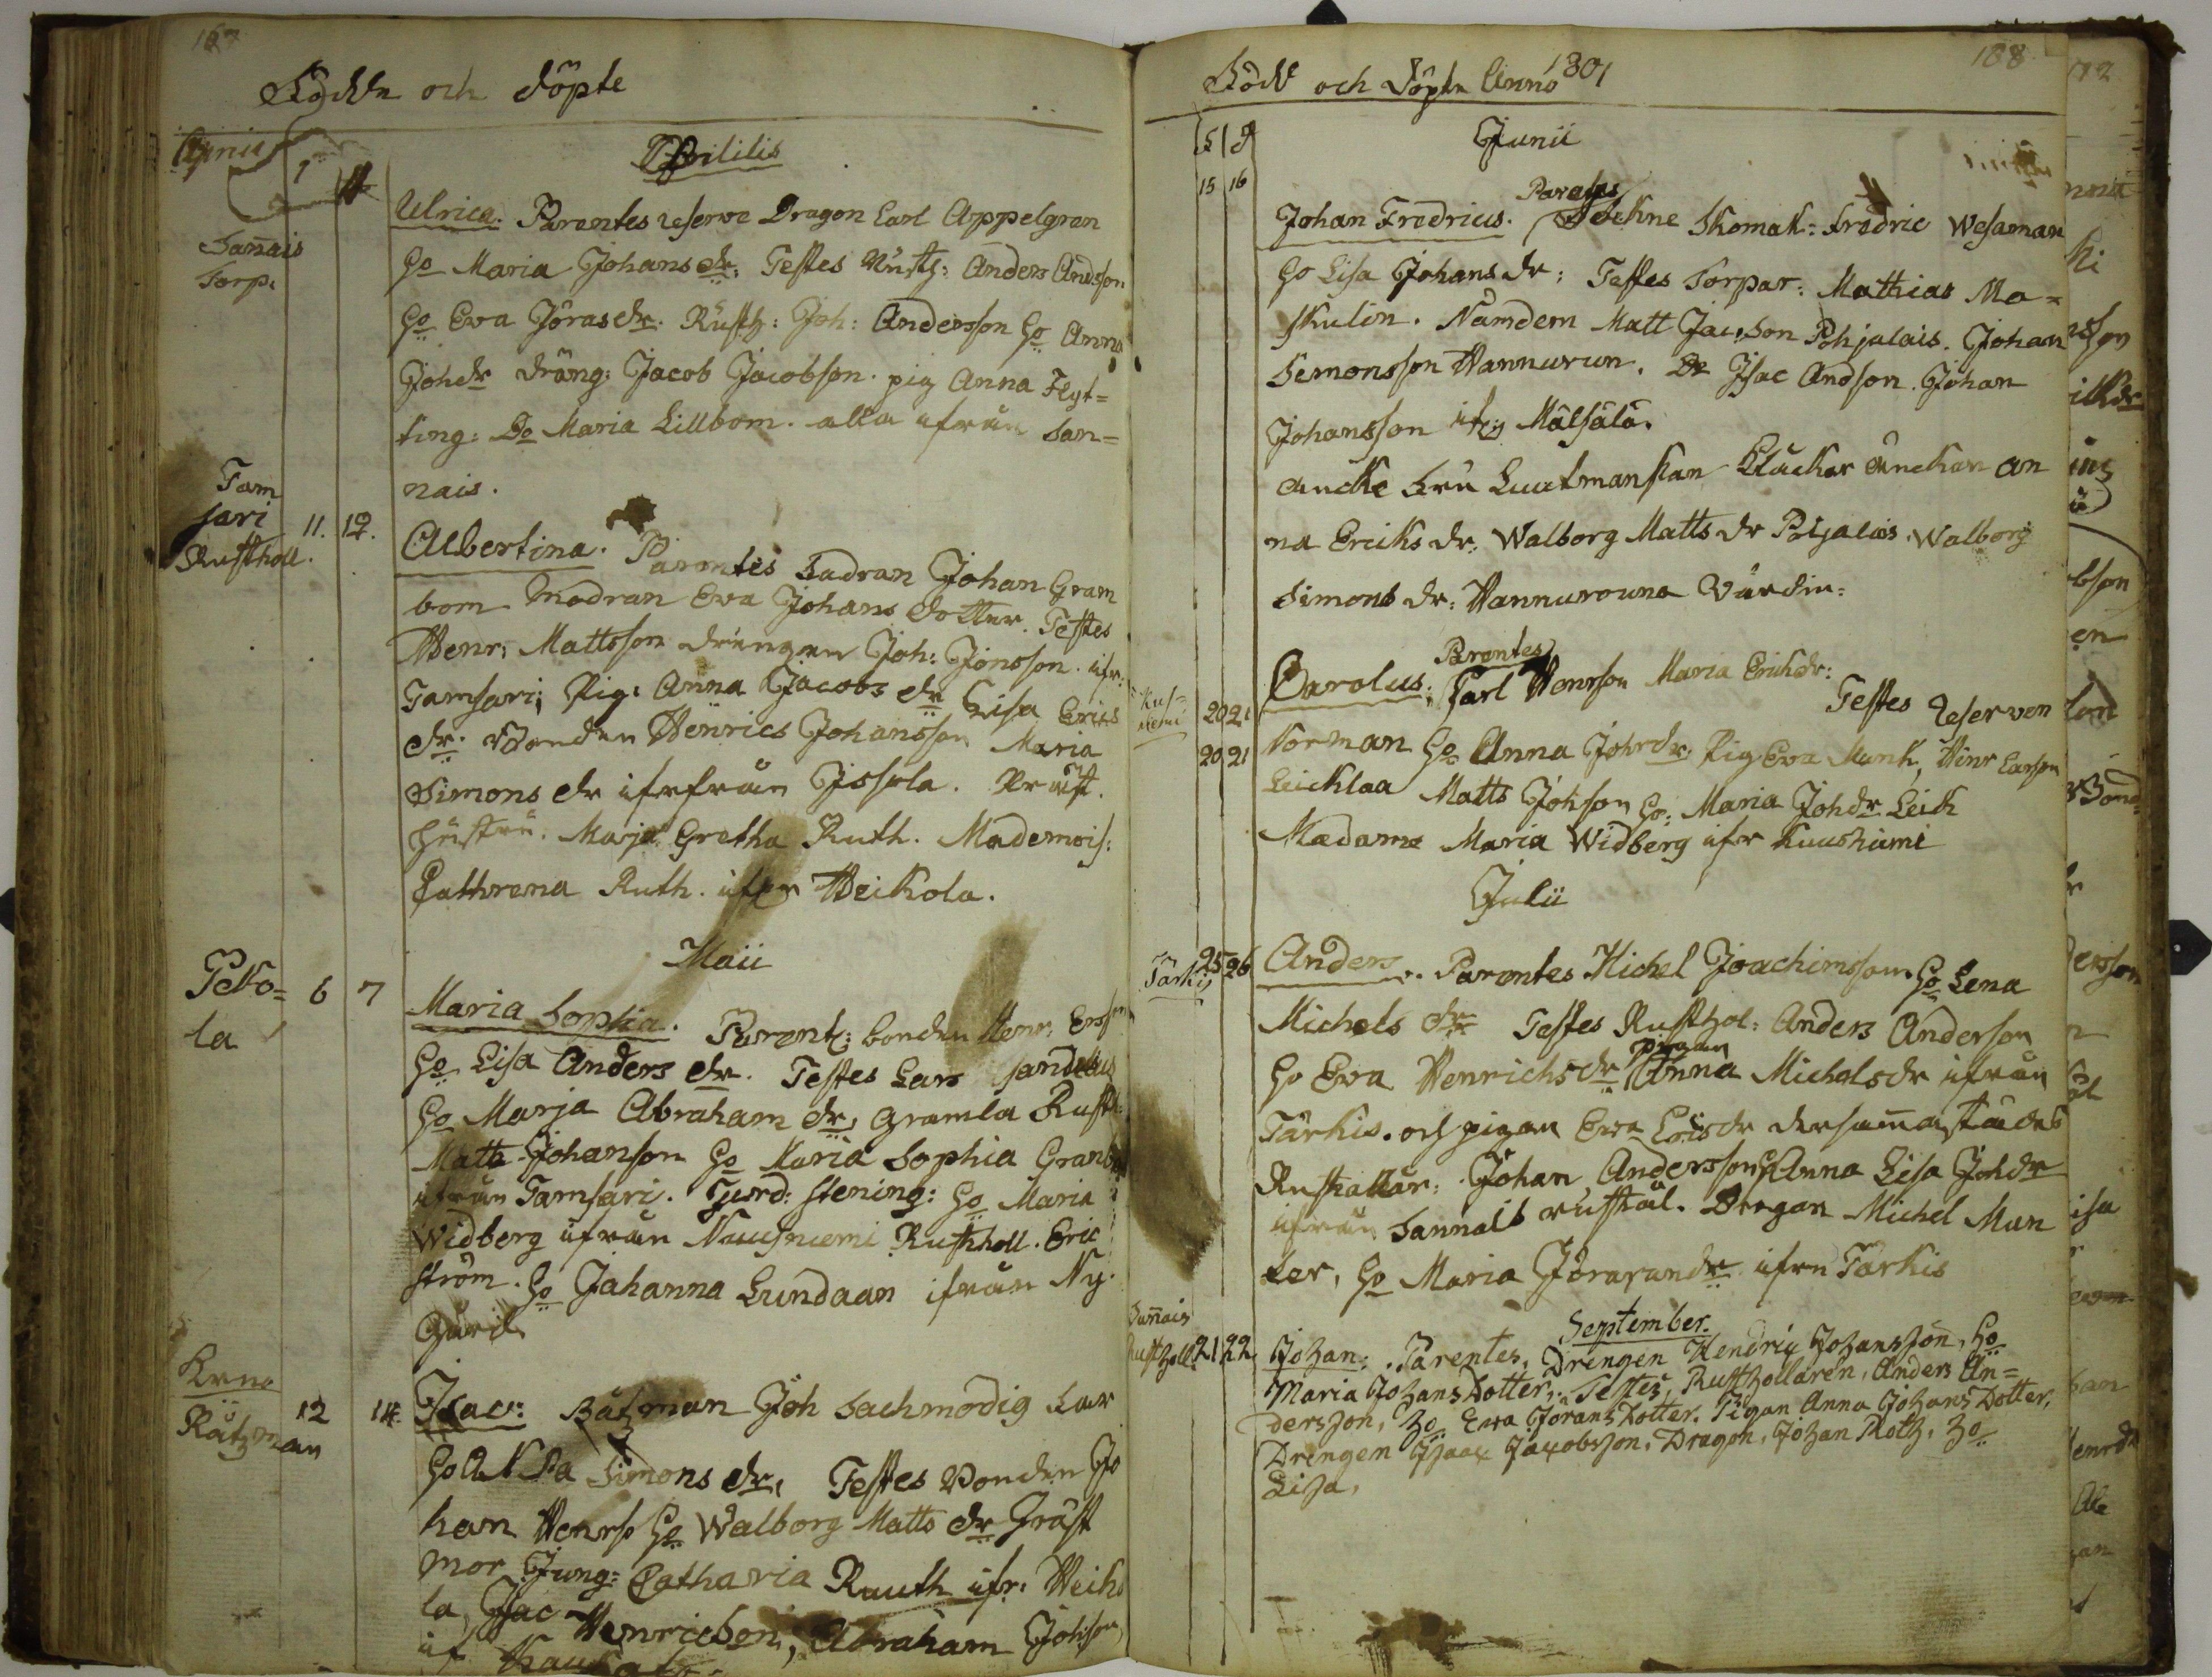 167
Födde och döpte
Aprilis
1
Sannais
Torp.
Ulrica. Parentes reserve Dragon Carl Appelgren
Ho Maria Johansdr: Testes Rusth: Anders Andsson
Ho Ewa Jörasdr. Rusth: Joh: Andersson Ho Anna
Johdr dräng: Jacob Jacobson. pig Anna Flyt=
ting: Do Maria Lillbom. alla ifrån San=
nais.
Tam
sari
Rusthall.
11. 12.
Albertina. Parentes Fadran Johan Gram
bom Modran Ewa Johans dotter. Testes
Henr: Mattsson drengen Joh: Jönsson. ifr:
Tamsari; Pig: Anna Jacobs dr Lisa Erics
dr. Bonden Henrics Johansson Maria
Simons dr ifrfrån Jssola.
hustru. Marja Gretha Ruth. Mademois:
Cathrena Ruth. ifrn Heikola.
Maii
Peko=
la
6 7
Maria Sophia. Parent: bonden Henr. Ersson
Ho Lisa Anders dr. Testes Lars Sandelius
Ho Marja Abraham dr, gramla Rusth
Matts Johanson Ho Maria Sophia Granb
ifrån Tamsari. Gierd: Stening: Ho Maria
Widberg ifrån Nausniemi Rusthall. Eric
ström. Ho Jahanna Lundaan ifrån Ny.
Gård
Krno
Båtzman
12 14.
Isac: Båtzman Joh Sachmodig
Ho Simons dr, Testes Bonden Jo
han Henrs Ho Walborg Matts dr
mor Jung: Catharia Rauth ifr: Heiko
la, Jsac Henricson, Abraham Johson
if
168
Född och döpte Anno 1801
Junii
15 16
Johan Fredricus. Parentes Sockne Skomak: Fredric Wesaman
Ho Lisa Johansdr; Testes Torpar: Mathias Ma=
skulin. Nämdem Matt Jacobson Pohjalais. Johan
Semonsson Hannurun. Dr Jsac Andson. Johan
Johansson ifrg Målsälä.
anckie fru Luutmanskan Klåckar änckan an
na Ericks dr. Walborg Matts dr Pohjalais. Walborg
Simons dr: Hannurouna Värdin:
Kus=
niemi
20 21
20 21
Carolus; Parentes Carl Henrson Maria Erichdr: Testes Reserven
Norman Ho Anna Johrdr. Pig Ewa Munk, Hinr Larson
Leicklaa Matts Johson Ho: Maria Johdr Leik
Madame Maria Widberg ifr Kuushiemi
Julii
Tarkis
25 26
Anders. Parentes Michel Joachimsson. Ho Lena
Michels dr Testes Rusthol: Anders Anderson
Ho Ewa Henrichsdr pigan Anna Michelsdr ifrån
Tärkis. och pigan Ewa Ericsdr dersammastädes
Rusthallar: Johan Andersson Ho Anna Lisa Johdr
ifrån Sannais rusthål. Dragon Michel Mun
ter, Ho Maria Jörarandr ifrn Tarkis
September.
Sannais
Rustholl.
21 22
Johan: Parentes, Drengen Hendric Johansson, Ho
Maria Johans Dotter; Testes, Rusthollaren, Anders An=
dersson, Ho Ewa Jörans Dotter. Pigan Anna Johans Dotter,
Drengen Jsaac Jacobsson, Dragon, Johan Roth, Ho
Lisa,